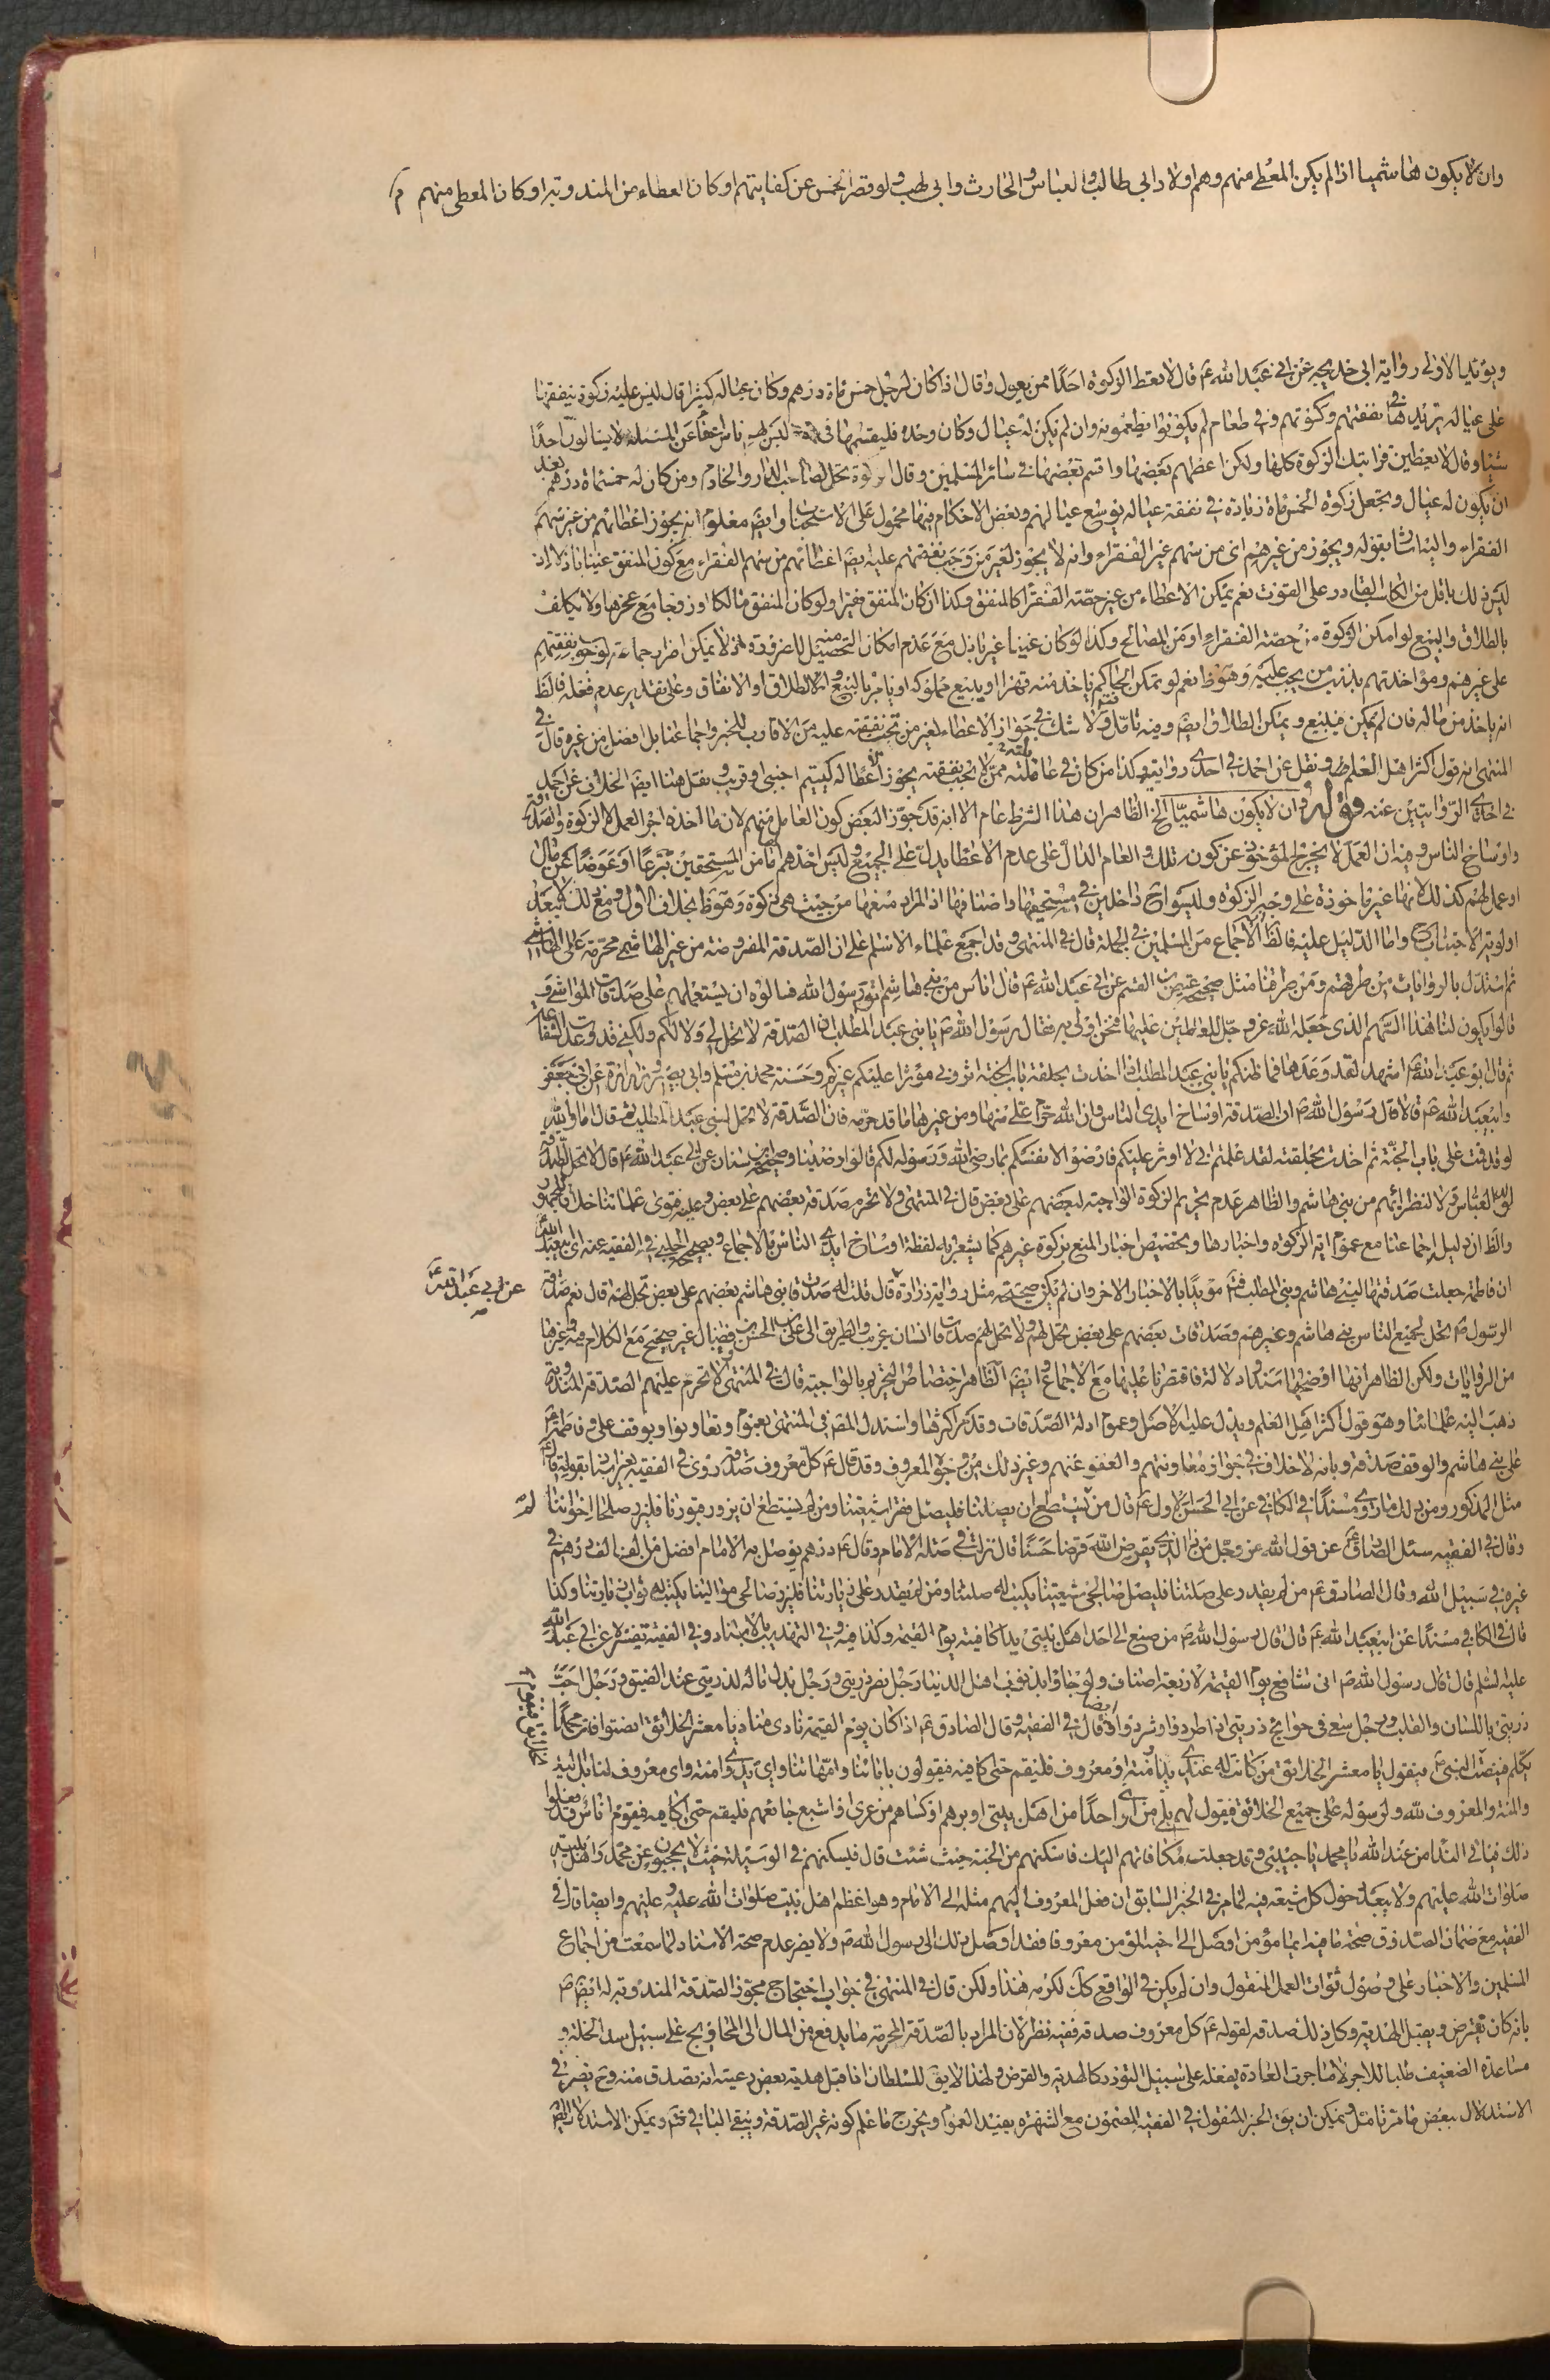 وان لا يكون هاشميا اذا لم يكن المعطى منهم وهم اولاد ابى طالب والعباس والحارث وابى لهب ولو قصر الخمس عن كفايتهم او كان العطاء من المندوبة او كان المعطى منهم
ويؤيد الاولى رواية ابى خديجه عن ابى عبد الله ع قال لا يعط الزكوة احدًا ممن يعول وقال اذا كان لرجل خمس مأة درهم وكان عياله كثيرا قال ليس عليه زكوة ينفقها
على عياله يزيدها فى نفقتهم وكسوتهم وفى طعام لم يكونوا يطعمونه وان لم يكن له عيال وكان وحده فليقسمها فى قوم ليس بهم باس اعفاء عن المسئلة لا يسألون احدًا
شيئا وقال لا تعطين قرابتك الزكوة كلها ولكن اعطهم بعضها واقسم بعضها فى سائر المسلمين وقال الزكوة تحل لصاحب الدار والخادم ومن كان له خمسمأة درهم بعد
ان يكون له عيال ويجعل زكوة الخمس مأة زيادة فى نفقة عياله يوسع عيالهم وبعض الاحكام فيها محمول على الاستحباب وايضا معلوم انه يجوز اعطائهم من غير سهم
الفقراء واليه اشار بقوله ويجوز من غيرهم اى من سهم غير الفقراء وانه لا يجوز لغير من وجب نفقتهم عليه ايضا اعطائهم من سهم الفقراء مع كون المنفق غنيا باذلا اذ
ليس ذلك باقل من الكاسب القادر على القوت نعم يمكن الاعطاء من غير حصة الفقراء كالمنفق وكذا ان كان المنفق فقيرا ولو كان المنفق مالكا او زوجا مع عجزهما ولا يكلف
بالطلاق والبيع لو امكن الزكوة من حصة الفقراء او من المصالح وكذا لو كان غنيا غير باذل مع عدم امكان التحصيل منه للضرورة اذ لا يمكن اضرار جماعة لوجوب نفقتهم
على غيرهم ومؤاخذتهم بذنب من يجب عليه وهو ظ نعم لو تمكن الحاكم ياخذ منه قهرا او يبيع مملوكه او يامر بالبيع او الطلاق او الانفاق وعلى تقدير عدم فعله فالظ
انه ياخذ من ماله فان لم يمكن فيبيع ويمكن الطلاق ايضا وفيه تأمل ولا شك فى جواز الاعطاء لغير من تجب نفقته عليه من الاقارب للخبر واجماعنا بل افضل من غيره قال فى
المنتهى انه قول اكثر اهل العلم ونقل عن احمد فى احدى روايتيه وكذا من كان فى عائلته ممن لا تجب نفقته يجوز اعطاله كيتيم اجنبى او قريب ونقل هنا ايضا الخلاف عن احمد
فى احدى الروايتين عنه قوله وان لا يكون هاشميّا الخ الظاهر ان هذا الشرط عام الا انه قد جوّز البعض كون العامل منهم لان ما اخذه اجر العمل لا الزكوة والصدقة
واوساخ الناس وفيه ان العمل لا يخرج المؤخوذ عن كونه تلك والعام الدال على عدم الاعطا يدل على الجميع وليس اخذهم اما من المستحقين تبرعًا او عوضًا عن مال
او عمل لهم كذلك لانها غير ماخوذة على وجه الزكوة وليسوا ح داخلين فى مستحقيها واصنافها اذ المراد منعها من حيث هى زكوة وهو ظ بخلاف الاول ومع ذلك لا يبعد
اولوية الاجتناب واما الدليل عليه فالظ الاجماع من المسلمين فى الجملة قال فى المنتهى وقد اجمع علماء الاسلام على ان الصدقة المفروضة من غير الهاشمى محرّمة على الهاشمى
ثم استدل بالروايات من طرقهم ومن طرقنا مثل صحيحة عيص بن القسم عن ابى عبد الله ع قال اناس من بنى هاشم اتوا رسول الله فسالوه ان يستعملهم على صدقات المواشى و
قالوا يكون لنا هذا السهم الذى جعله الله عز وجل للعاملين عليها فنحن اولى به فقال رسول الله ص يا بنى عبد المطلب ان الصدقة لا تحل لى ولا لكم ولكنى قد وعدت الشفاعة
ثم قال ابو عبد الله ع اشهد لقد وعدها فما ظنكم يا بنى عبد المطلب اذا اخذت بحلقة باب الجنة اترونى مؤثرا عليكم غيركم وحسنة محمد بن مسلم وابى بصير وزرارة عن ابى جعفر
وابيعبد الله ع قالا قال رسول الله ص ان الصدقة اوساخ ايدى الناس وان الله حرم علىّ منها ومن غيرها ما قد حرّمه فان الصّدقة لا تحل لبنى عبد المطلب ثم قال اما والله
لو قد قمت على باب الجنّة ثم اخذت بحلقته لقد علمتم انى لا اوثر عليكم فارضوا لانفسكم بما رضى الله ورسوله لكم قالوا رضينا وصحيحة بن سنان عن ابى عبد الله ع قال لا تحل الصدقة
لولد العباس ولا لنظرائهم من بنى هاشم والظاهر عدم تحريم الزكوة الواجبة لبعضهم على بعض قال فى المنتهى ولا تحرم صدقة بعضهم على بعض وعليه فتوى علمائنا خلافا للجمهور
والظ ان دليله اجماعنا مع عموم اية الزكوة واخبارها وتخصيص اخبار المنع بزكوة غيرهم كما يشعر به لفظة اوساخ ايدى الناس بالاجماع وبصحيحة الحلبى فى الفقيه عنه اى ابيعبد الله
ان فاطمة جعلت صدقتها لبنى هاشم وبنى المطلب فتم مؤيدًا بالاخبار الاخر وان لم تكن صحيحة مثل رواية زرارة قال قلت له صدقات بنى هاشم بعضهم على بعض تحل لهم قال نعم صدقة
عن ابى عبد الله ع
الرسول ص تحل لجميع الناس بنى هاشم وغيرهم وصدقات بعضهم على بعض تحل لهم ولا تحل لهم صدقات انسان غريب والطريق الى على بن الحسن بن فضال غير صحيح مع الكلام فيه وغيرها
من الروايات ولكن الظاهر انها اوضحها سندا ودلالة فاقتصرنا عليها مع الاجماع وايضا الظاهر اختصاص التحريم بالواجبة قال فى المنتهى لا تحرم عليهم الصدقة المندوبة
ذهب اليه علمائنا وهو قول اكثر اهل العلم ويدل عليه الاصل وعموم ادلة الصدقات وقد مر اكثرها واستدل المصنف فى المنتهى بعموم وتعاونوا وبوقف على وفاطمة ع
على بنى هاشم والوقف صدقة وبانه لا خلاف فى جواز معاونتهم والعفو عنهم وغير ذلك من وجوه المعروف وقد قال ع كل معروف صدقة
مثل المذكور ومن ذلك ما روى مسندًا فى الكافى عن ابى الحسن الاول ع قال من لم يستطع ان يصلنا فليصل فقراء شيعتنا ومن لم يستطع ان يزور قبورنا فليزر صلحاء اخواننا
وقال فى الفقيه سئل الصادق ع عن قول الله عز وجل من ذا الذى يقرض الله قرضا حسنًا قال نزلت فى صلة الامام وقال ع درهم يوصل به الامام افضل من الف الف درهم فى
غيره فى سبيل الله وقال الصادق ع من لم يقدر على صلتنا فليصل صالحى شيعتنا يكتب له صلتنا ومن لم يقدر على زيارتنا فليزر صالحى موالينا يكتب له ثواب زيارتنا وكذا
قال فى الكافى مسندًا عن ابيعبد الله ع قال قال رسول الله ص من صنع الى احد من اهل بيتى يدا كافيته يوم القيمة وكذا فيه وفى التهذيب بالاسناد وفى الفقيه
عليه السلم قال قال رسول الله ص انى شافع يوم القيمة لاربعة اصناف ولو جاؤا بذنوب اهل الدنيا رجل نصر ذريتى ورجل بذل ماله لذريتى عند الضيق ورجل احب
ذريتى باللسان والقلب ورجل سعى فى حوائج ذريتى اذا طردوا وشردوا وقال فى الفقيه ايضا وقال الصادق ع اذا كان يوم القيمة نادى مناد يا معشر الخلائق انصتوا فان محمدًا
يكلمكم فينصت الخلائق فيقوم
يكلم فينصت النبى ع فيقول يا معشر الخلائق من كانت له عندى يد او منة او معروف فليقم حتى اكافيه فيقولون بابائنا وامهاتنا واى يد واى منة واى معروف لنا بل اليد
والمنة والمعروف لله ولرسوله على جميع الخلائق فيقول لهم بلى من اوى احدًا من اهل بيتى او برهم او كساهم من عرى او اشبع جائعهم فليقم حتى اكافيه فيقوم اناس قد فعلوا
ذلك فياتى النداء من عند الله يا محمد يا حبيبى قد جعلت مكافاتهم اليك فاسكنهم من الجنة حيث شئت قال فيسكنهم فى الوسيلة حيث لا يحجبون عن محمد واهل بيته
صلوات الله عليهم ولا يبعد دخول كل شيعته فيه لما مر فى الخبر السابق ان فعل المعروف اليهم مثله الى الامام وهو اعظم اهل بيت صلوات الله عليه وعليهم وايضا قال فى
الفقيه مع ضمان الصدوق صحة ما فيه ايما مؤمن اوصل الى اخيه المؤمن معروفا فقد اوصل ذلك الى رسول الله ص ولا يضر عدم صحة الاسناد لما سمعت من اجماع
المسلمين والاخبار على وصول ثواب العمل المنقول وان لم يكن فى الواقع كك لكرمه هذا ولكن قال فى المنتهى فى جواب احتجاج مجوّز الصدقة المندوبة له ايضا ص
بانه كان يقترض ويقبل الهدية وكل ذلك صدقة لقوله ع كل معروف صدقة ففيه نظر لان المراد بالصدقة المحرمة ما يدفع من المال الى المحاويج على سبيل سد الخلة و
مساعدة الضعيف طلبا للاجر لا ما جرت العادة بفعله على سبيل التودد كالهدية والقرض ولهذا لا يقال للسلطان اذا قبل هدية بعض رعيته انه تصدق منه وح يضر فى
الاستدلال ببعض ما مر تأمل ويمكن ان يبقى الخبر المنقول فى الفقيه المضمون مع الشهرة يفيد العموم ويخرج ما علم كونه غير الصدقة ويبقى الباقى فتم ويمكن الاستدلال